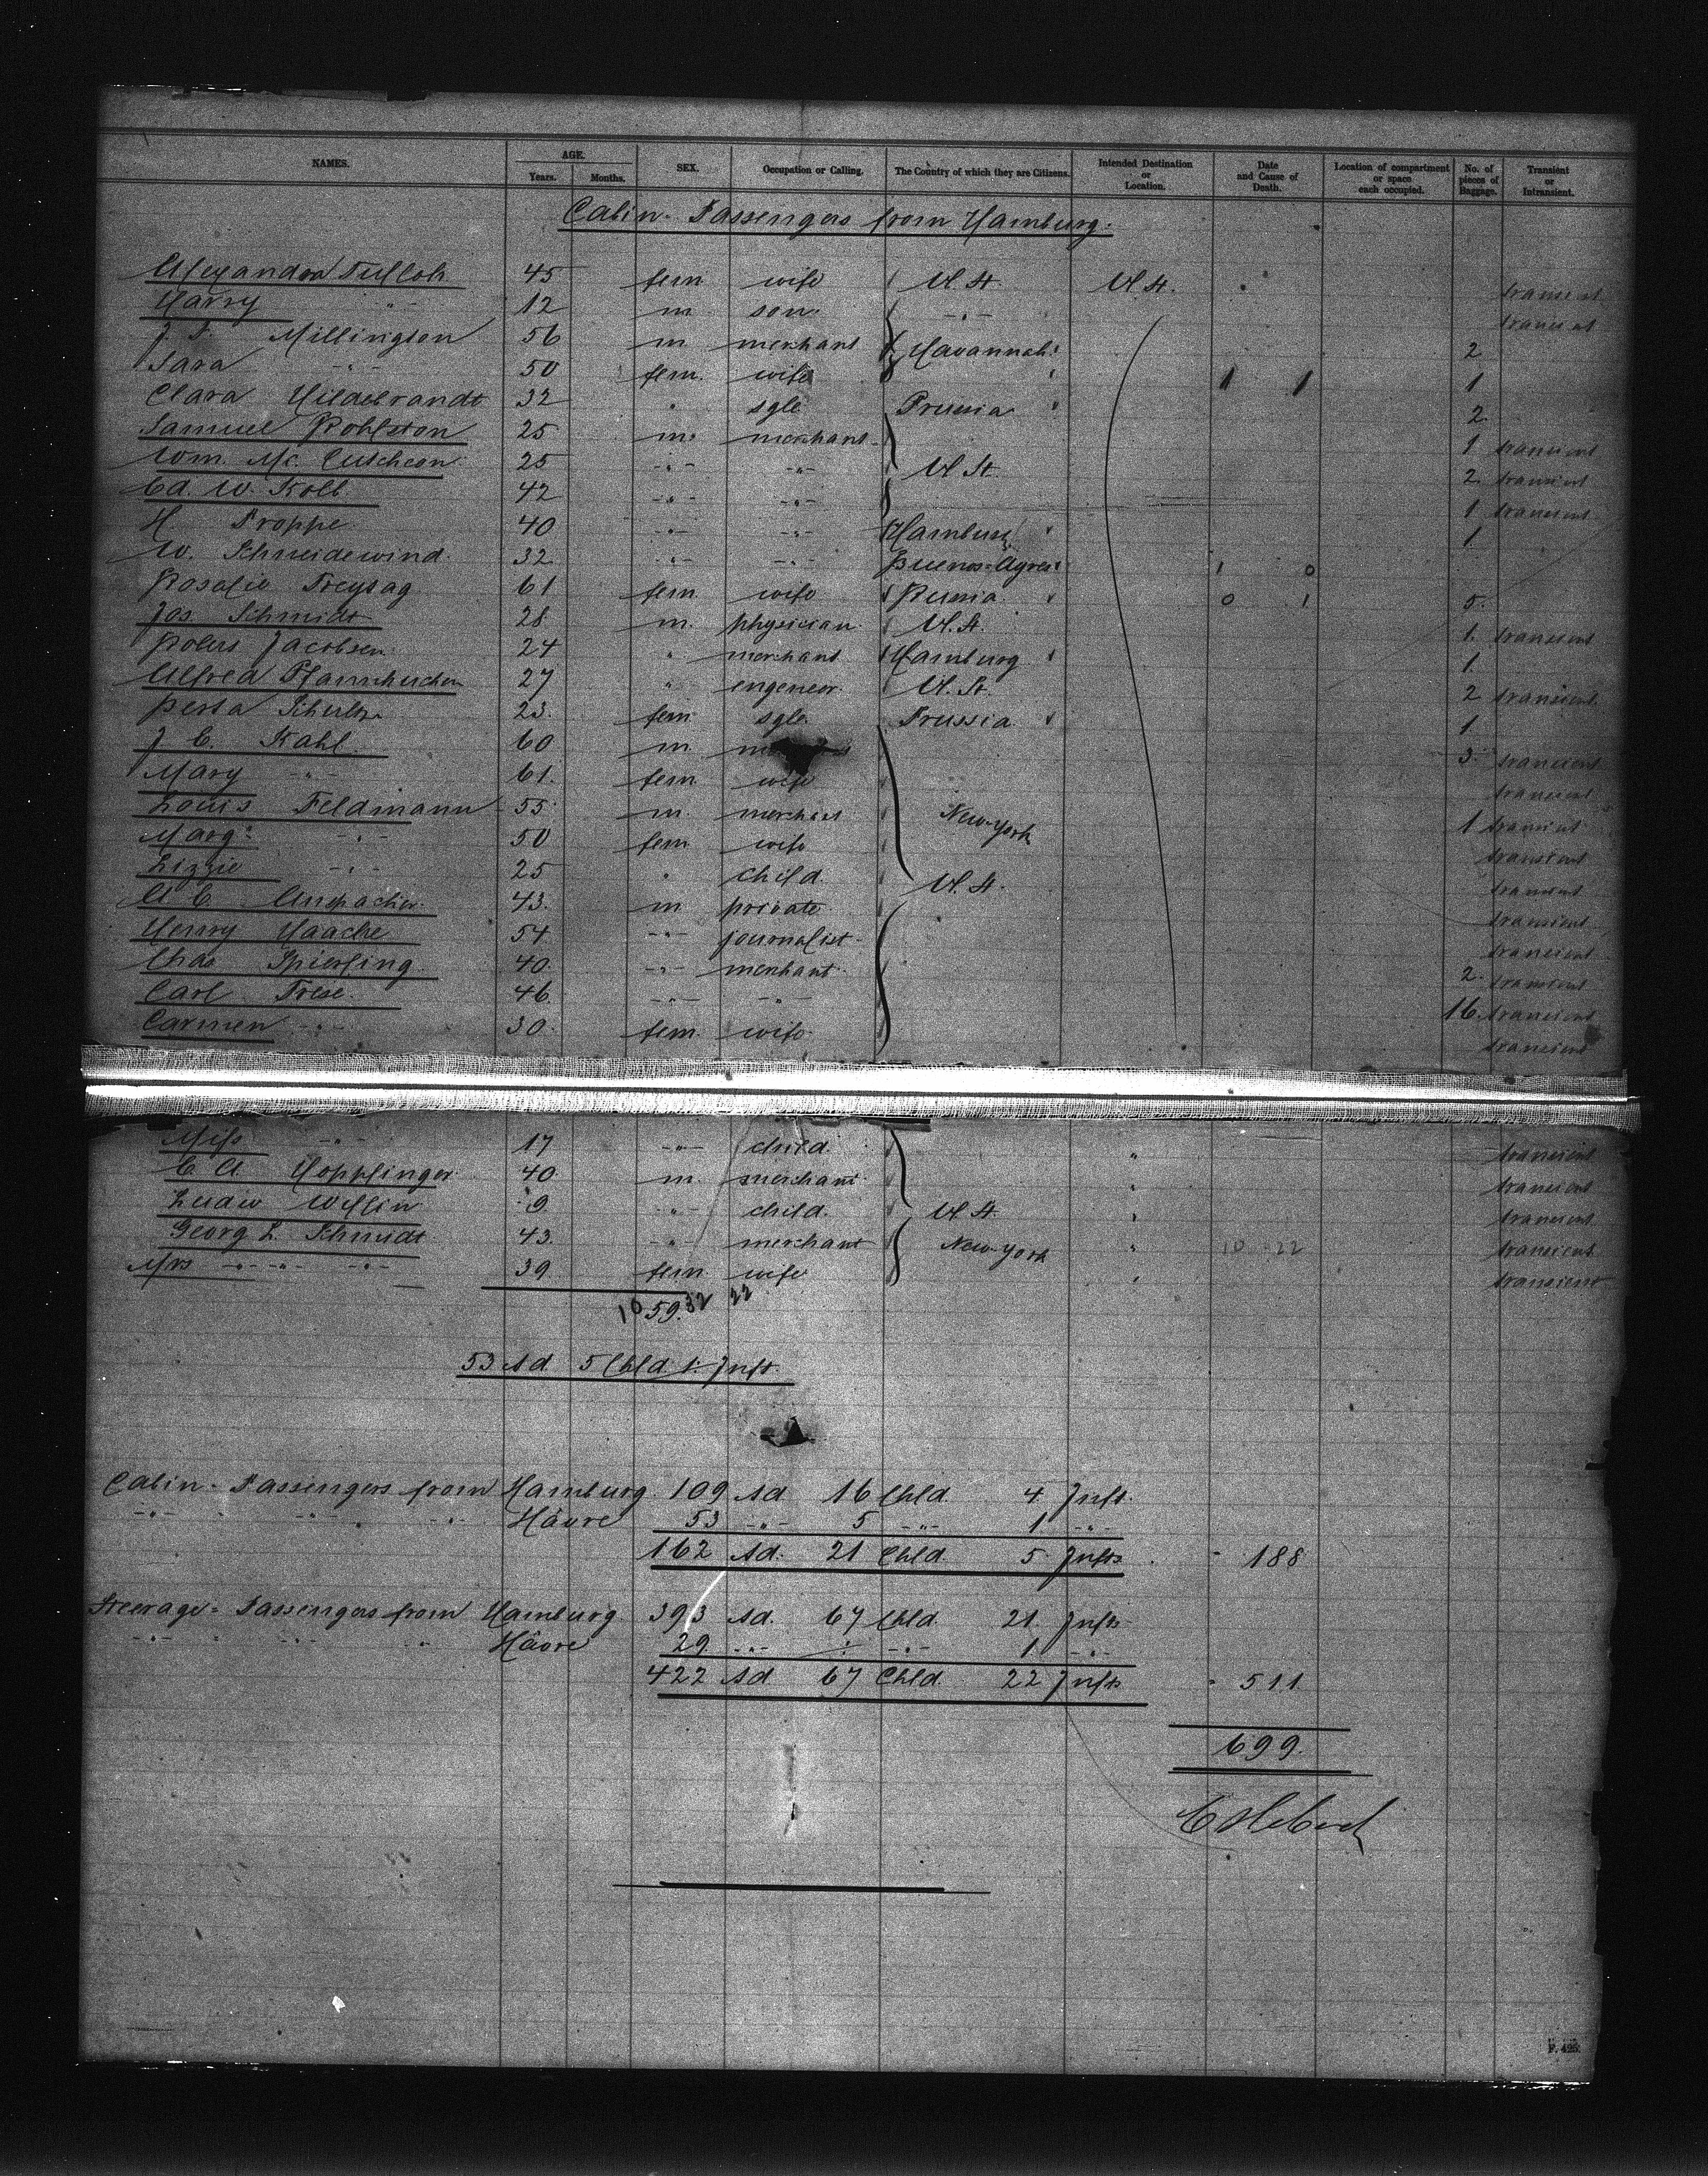 NAMES. AGE. Years. Months. SEX. Occupation or Calling. The Country of which they are Citizens. Intended Destination or Location. Date and Cause of Death. Location of compartment or space each occupied. No. of pieces of Baggage. Transient or Intransient.
Cabin-Passengers from Hamburg.
Alexandra Tulloh 45 fem wife U. St. U. St. transient
Harry -"- 12 m son -"- transient
J. Millington 56 m merchant Havannah 2
Sara -"- 50 fem. wife 1 1 1
Clara Hildebrandt 32 " sgle Prussia 2
Samuel Rohlston 25 m. merchant 1 transient
Wm. Mc. Cutcheon 25 -"- -"- U. St. 2. transient
Ed. W. Kolb 42 -"- -"- 1 transient
H Proppe 40 -"- -"- Hamburg 1
W. Schneidewind 32 -"- -"- Buenos-Ayres 1 0
Rosalie Freytag 61 fem. wife Russia 0 1 5.
Jos. Schmidt 28 m. physician U. St. 1. transient
Robert Jacobsen 24 " merchant Hamburg 1
Alfred Pfannkuchen 27 " engeneer U. St. 2 transient
Berta Schultze 23. fem sgle. Prussia 1
J C. Kahl 60 m. 3 transient
Mary -"- 61. fem. wife transient
Louis Feldmann 55 m. merchant New-York 1 transient
Marg. -"- 50 fem wife transient
Lizzie -"- 25 " child. U. St. transient
A C. Anspacher 43. m private transient
Henry Haacke 54 -"- journalist transient
Chas Spierling 40. -"- merchant 2. transient
Carl Frese 46. -"- -"- 16. transient
Carmen -"- 30. fem. wife transient
Miss -"- 17 -"- child. " transient
C A. Hoppfinger 40. m. merchant " transient
Ludw 9 -"- child. U St. " transient
Georg L. Schmidt 43. -"- merchant New-York " 10 22 transient
Mrs -"- -"- -"- 39 fem wife " transient
10 59. 32 22
53 Ad. 5 Chld 1. Inft.
Cabin-Passengers from Hamburg. 109 Ad 16 Chld. 4. Inft.
-"- " -"- " -"- Hâvre 53 -"- 5 -"- 1 -"-
162 Ad. 21 Chld 5 Infts - 188
Steerage-Passengers from Hamburg 393 Ad. 67 Chld. 21. Infts
-"- " -"- " Hâvre 29. -"- -"- 1 -"-
422 Ad 67 Chld. 22 Infts - 511
699.
F. 425.